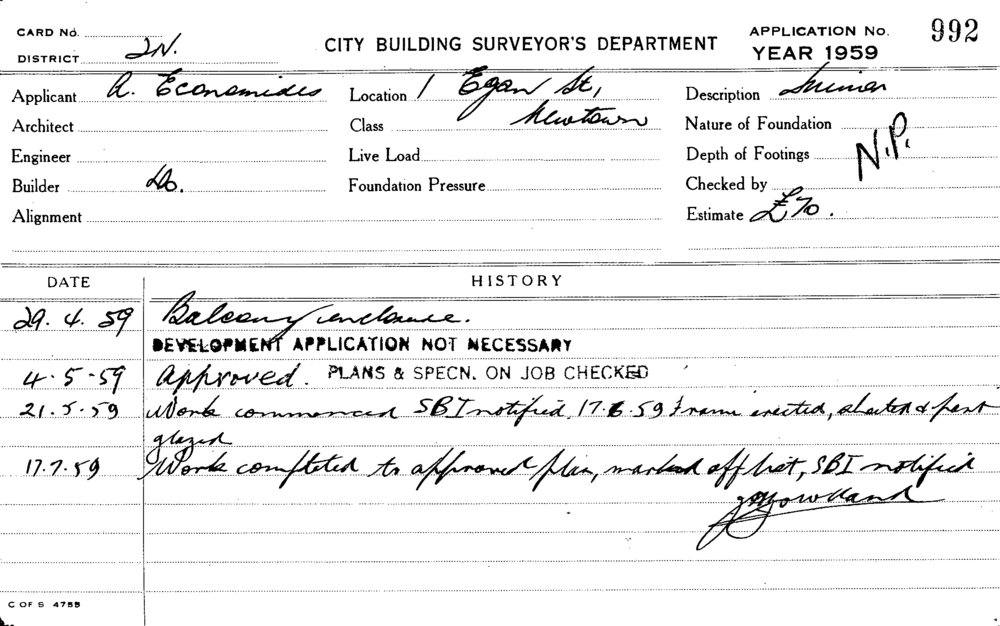 CARD No.
DISTRICT 2N.
CITY BUILDING SURVEYOR'S DEPARTMENT
APPLICATION No. 992
YEAR 1959
Applicant A. Economides
Location 1 Egan St,
Newtown
Description Minor
Architect
Class
Nature of Foundation
Engineer
Live Load
Depth of Footings
N.P.
Builder Do.
Foundation Pressure
Checked by
Alignment
Estimate £70.
DATE HISTORY
29.4.59 Balcony enclosure.
DEVELOPMENT APPLICATION NOT NECESSARY
4-5-59 Approved. PLANS & SPECN. ON JOB CHECKED
21.5.59 Work commenced SBI notified, 17.6.59 Frame erected, sheeted & part
glazed
17.7.59 Work completed to approved plan, marked off list, SBI notified
C OF S 4755